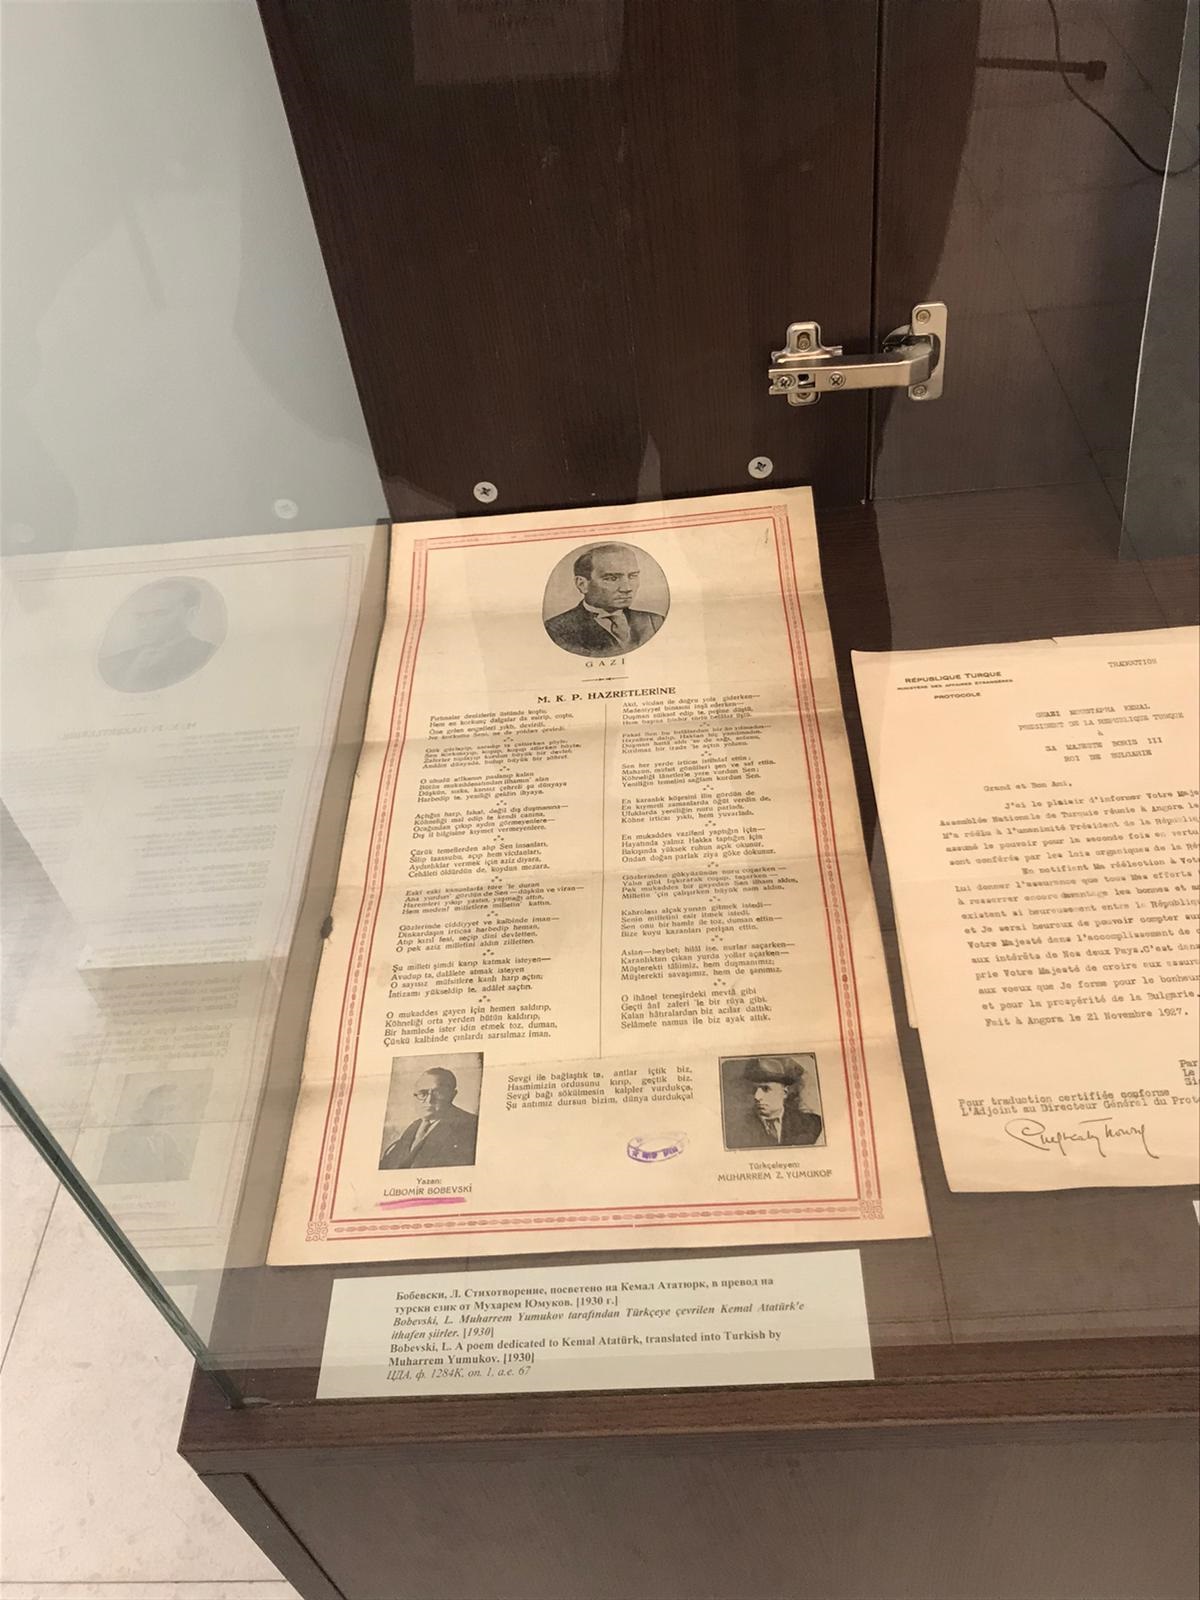 GAZİ
M. K. P. HAZRETLERİNE
Fırtınalar denizlerin üstünde koştu,
Hem en korkunç dalgalar da esirip, coştu,
Öne gelen engelleri yıktı, devirdi,
Ne korkuttu Seni, ne de yoldan çevirdi.
O ulusal
Bütün mukaddesatından ilhamın' alan
Düşkün, sıska, kansız çehreli şu dünyaya
Harbedip te, yeniliği geldin ihyaya.
Açtığın harp, fakat, değil dış düşmanına—
Köhneliği mal edip te kendi canına,
Ocağından çıkıp aydın görmeyenlere—
Dış il bilgisine kıymet vermeyenlere.
Çürük temellerden alıp Sen insanları,
Silip taassubu, açıp hem vicdanları,
Aydınlıklar vermek için aziz diyara,
Cehaleti öldürdün de, koydun mezara.
Eski eski kanunlarla töre 'le duran
Ana yurdun' gördün de Sen—düşkün ve viran—
Haremleri yıkıp yastın, yaşmağı attın,
Hem medenî milletlere milletin' kattın.
Gözlerinde ciddiyet ve kalbinde iman—
Dinkardaşın irticaa harbedip heman,
Atıp kızıl fesi, seçip dini devletten,
O pek aziz milletini aldın zilletten.
Şu milleti şimdi karıp katmak isteyen—
Avudup ta, dalâlete atmak isteyen
O sayısız müfsitlere kanlı harp açtın;
İntizamı yükseldip te, adâlet saçtın.
O mukaddes gayen için hemen saldırıp,
Köhneliği orta yerden bütün kaldırıp,
Bir hamlede ister idin etmek toz, duman,
Çünkü kalbinde çınlardı sarsılmaz iman.
Akıl, vicdan ile doğru yola giderken—
Medeniyyet binasını inşâ ederken—
Sen her yerde irticaı istihfaf ettin;
Mahzun, münfail gönülleri şen ve saf ettin.
Köhneliği lânetlerle yere vurdun Sen,
Yeniliğin temelini sağlam kurdun Sen.
En karanlık köşesini ilin gördün de
En kıymetli zamanlarda öğüt verdin de,
Ufuklarda yeniliğin nuru parladı,
Köhne irticaı yıktı, hem yuvarladı.
En mukaddes vazifeni yaptığın için—
Hayatında yalnız Hakka taptığın için
Bakışında yüksek ruhun açık okunur,
Ondan doğan parlak ziya göke dokunur.
Gözlerinden gökyüzünün nuru coşarken—
Yalın gibi fışkırarak coşup, taşarken—
Pek mukaddes bir gayeden Sen ilham aldın,
Milletin 'çin çalışırken büyük nam aldın.
Kahrolası alçak yunan gitmek istedi—
Senin milletini esir itmek istedi,
Sen onu bir hamle ile toz, duman ettin—
Bize kuyu kazanları perişan ettin.
Aslan—heybet; hilâl ise, nurlar saçarken—
Karanlıktan çıkan yurda yollar açarken—
Müşterekti tâliimiz, hem düşmanımız;
Müşterekti savaşımız, hem de şanımız.
O ihânet teneşirdeki mevtâ gibi
Geçti ânî zaferi 'le bir rüya gibi.
Kalan hâtıralardan biz acılar dattık;
Selâmete namus ile biz ayak attık.
Sevgi ile bağlaştık ta, antlar içtik biz,
Hasmimizin ordusunu kırıp, geçtik biz.
Sevgi bağı sökülmesin kalpler vurdukça,
Şu antımız dursun bizim, dünya durdukça!
Yazan:
LÜBOMİR BOBEVSKİ
Türkçeleyen:
MUHARREM Z. YUMUKOF
Бобевски, Л. Стихотворение, посветено на Кемал Ататюрк, в превод на
турски език от Мухарем Юмуков. [1930 г.]
Bobevski, L. Muharrem Yumukov tarafından Türkçeye çevrilen Kemal Atatürk'e
ithafen şiirler. [1930]
Bobevski, L. A poem dedicated to Kemal Atatürk, translated into Turkish by
Muharrem Yumukov. [1930]
ЦДА, ф. 1284К, оп. 1, а.е. 67
TRADUCTION
RÉPUBLIQUE TURQUE
MINISTÈRE DES AFFAIRES ÉTRANGÈRES
PROTOCOLE
GHAZI MOUSTAPHA KEMAL
PRESIDENT DE LA REPUBLIQUE TURQUE
à
SA MAJESTE BORIS III
ROI DE BULGARIE
Grand et Bon Ami,
J'ai le plaisir d'informer Votre Maje
Assemblée Nationale de Turquie réunie à Angora
M'a réélu à l'unanimité Président de la Républiq
assumé le pouvoir pour la seconde fois en vertu
sont conférés par les lois organiques de la Ré
En notifiant Ma réélection à Vot
Lui donner l'assurance que tous Mes efforts
à resserrer encore davantage les bonnes et
existent si heureusement entre la Républi
et Je serai heureux de pouvoir compter sur
Votre Majesté dans l'accomplissement de
aux intérêts de Nos deux Pays. C'est dans
prie Votre Majesté de croire aux assur
aux voeux que Je forme pour le bonheur
et pour la prospérité de la Bulgarie.
Fait à Angora le 21 Novembre 1927.
Par
Le
Pour traduction certifiée conforme
L'Adjoint au Directeur Général du Proto